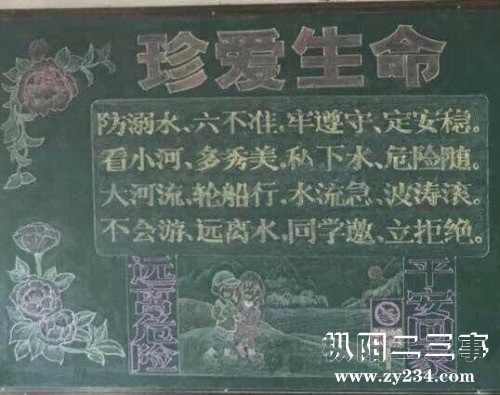 珍爱生命
防溺水、六不准，牢遵守、定安稳。
看小河、多秀美，私下水、危险随。
大河流、轮船行，水流急、波涛滚。
不会游、远离水，同学邀、立拒绝。
远离危险
平安回家
枞阳二三事
www.zy234.com